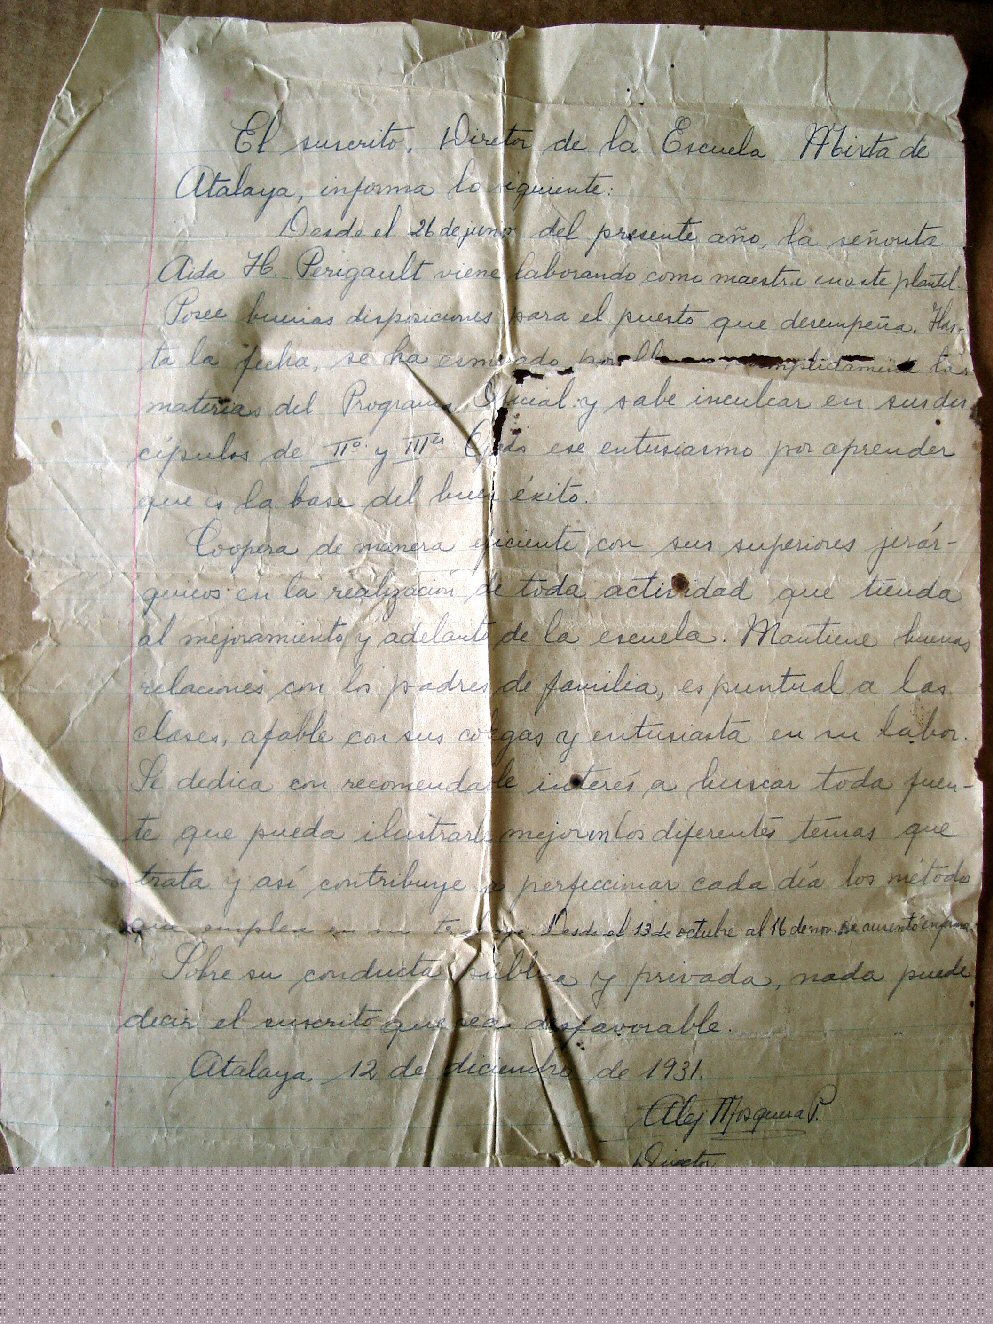 El suscrito, Diretor de la Escuela Mixta de
Atalaya, informa lo siguiente:
Desde el 26 de junio del presente año, la señorita
Aida H. Perigault viene laborando como maestra en este plantel.
Posee buenas disposiciones para el puesto que desempeña. Has-
ta la fecha, se ha esmerado por completamente las
materias del Programa Oficial y sabe inculcar en sus dis
cípulos de IIº y IIIer Grado ese entusiasmo por aprender
que es la base del buen éxito.
Coopera de manera eficiente con sus superiores jerár-
quicos en la realización de toda actividad que tienda
al mejoramiento y adelanto de la escuela. Mantiene buenas
relaciones con los padres de familia, es puntual a las
clases, afable con sus colegas y entusiasta en su labor.
Se dedica con recomendable interés a buscar toda fuen-
te que pueda ilustrarle mejor en los diferentes temas que
trata y así contribuye a perfeccionar cada día los métodos
que emplea en su Desde el 13 de octubre al 16 de nov. se ausentó enferma.
Sobre su conducta pública y privada, nada puede
decir el suscrito que sea desfavorable.
Atalaya, 12 de diciembre de 1931.
Alej Mosquera P.
Director